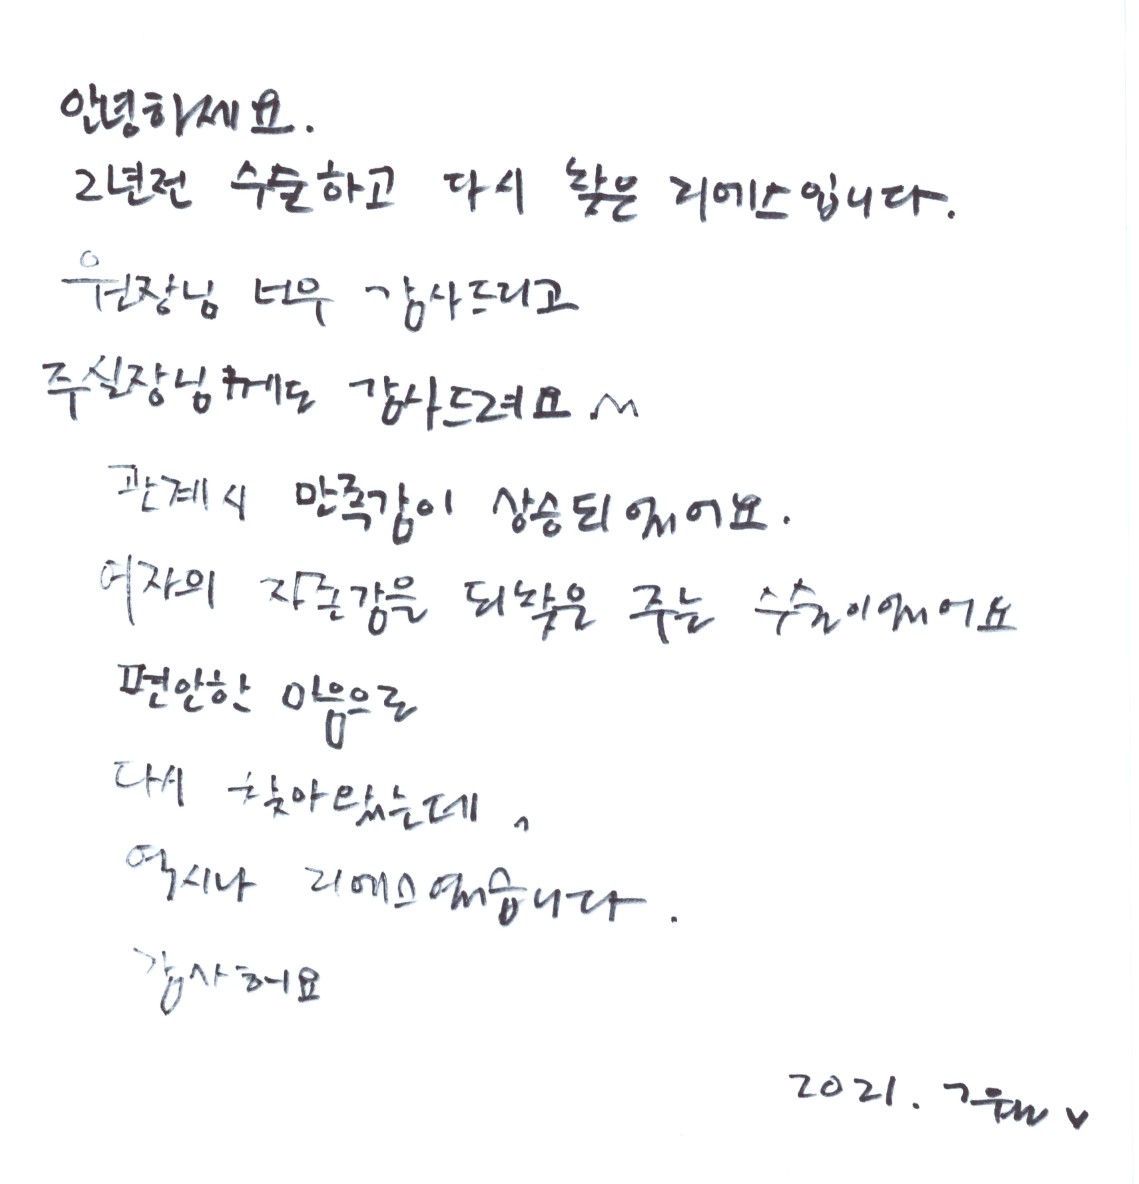 안녕하세요.
2년전 수술하고 다시 찾은 리에스입니다.
원장님 너무 감사드리고
주실장님께도 감사드려요 ^^
관계시 만족감이 상승되었어요.
여자의 자존감을 되찾은 주는 수술이였어요
편안한 마음으로
다시 찾아왔는데,
역시나 리에스였습니다.
감사해요
2021.